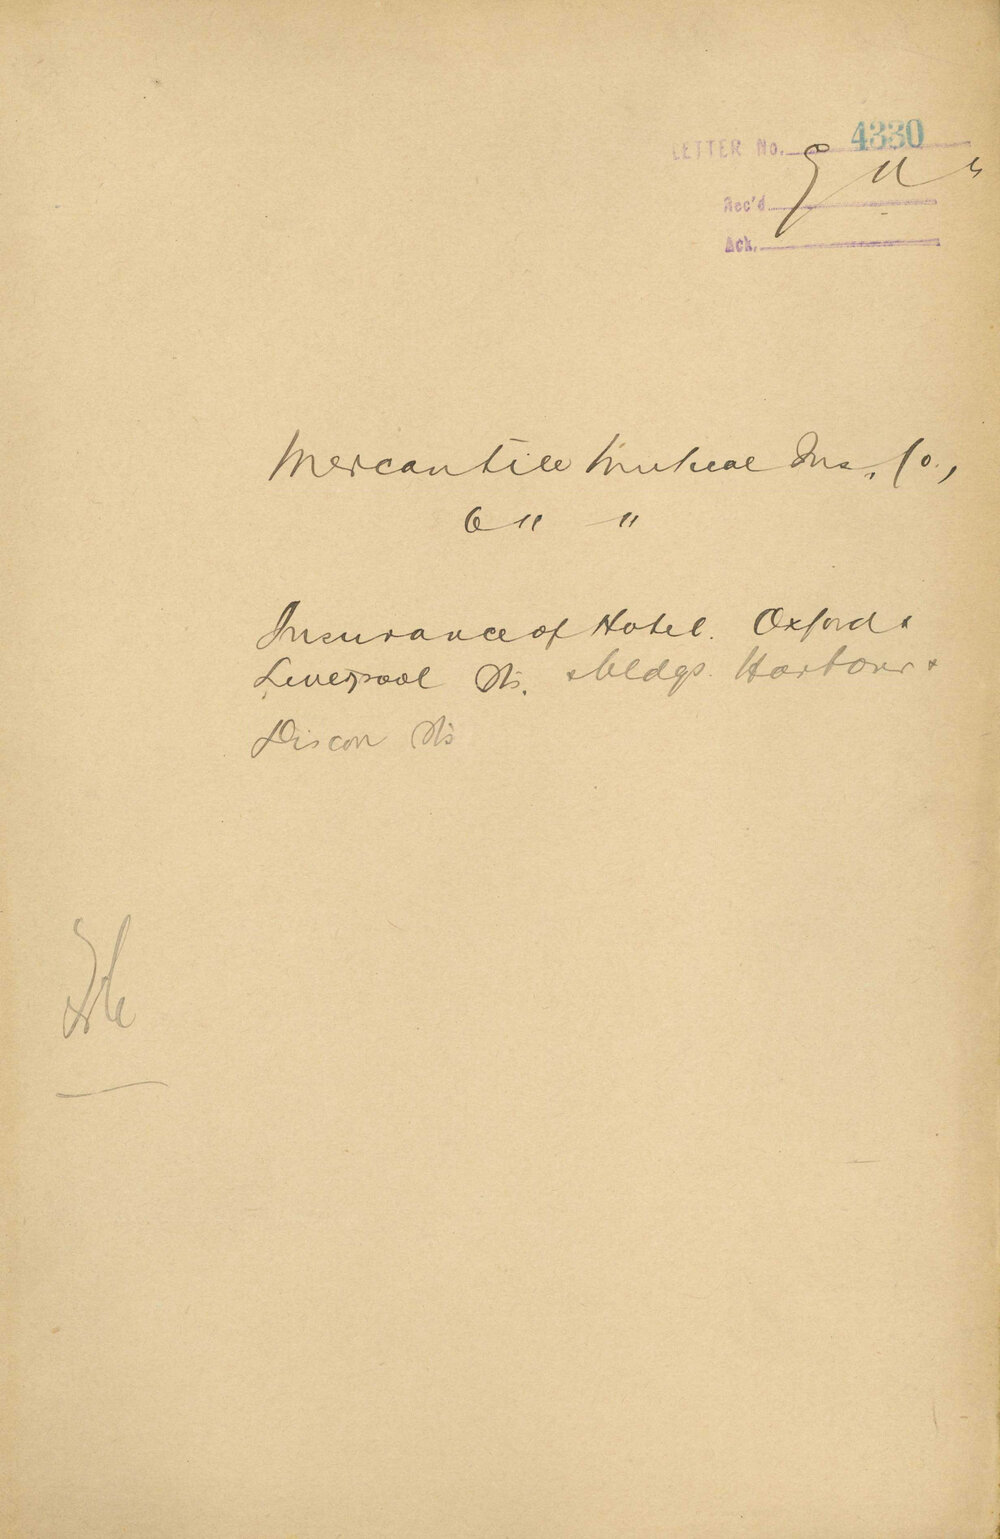 LETTER No. 4330
Rec'd
Ack.
Mercantile Mutual Ins. Co.,
6 " "
Insurance of Hotel. Oxford &
Liverpool Sts. & bldgs. Harbour &
Dixon Sts